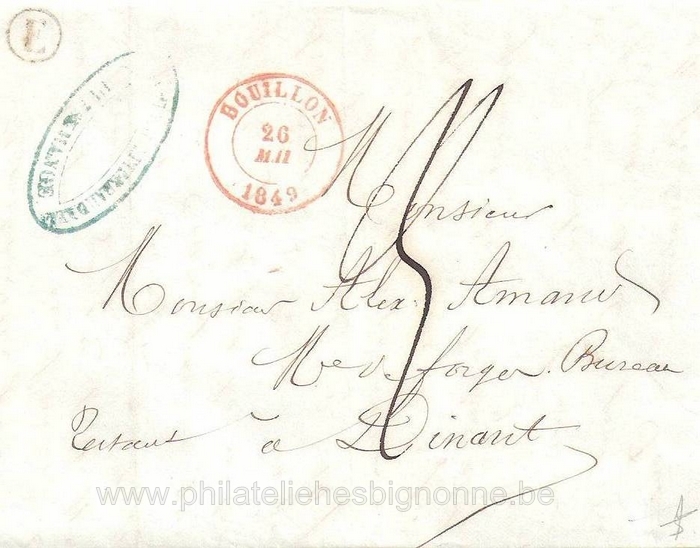 E
BOUILLON
26
MAI
1849
Monsieur
Monsieur Alex. Amand
Me de forges. Bureau
Restant à Dinant
www.philateliehesbignonne.be